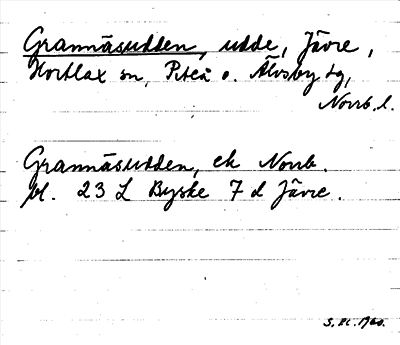 Grannäsudden, udde, Jävre,
Hortlax sn, Piteå o. Älvsby tg,
Norrb. l.
Grannäsudden, ek Norrb.
bl. 23 L Byske 7 d Jävre.
1960.